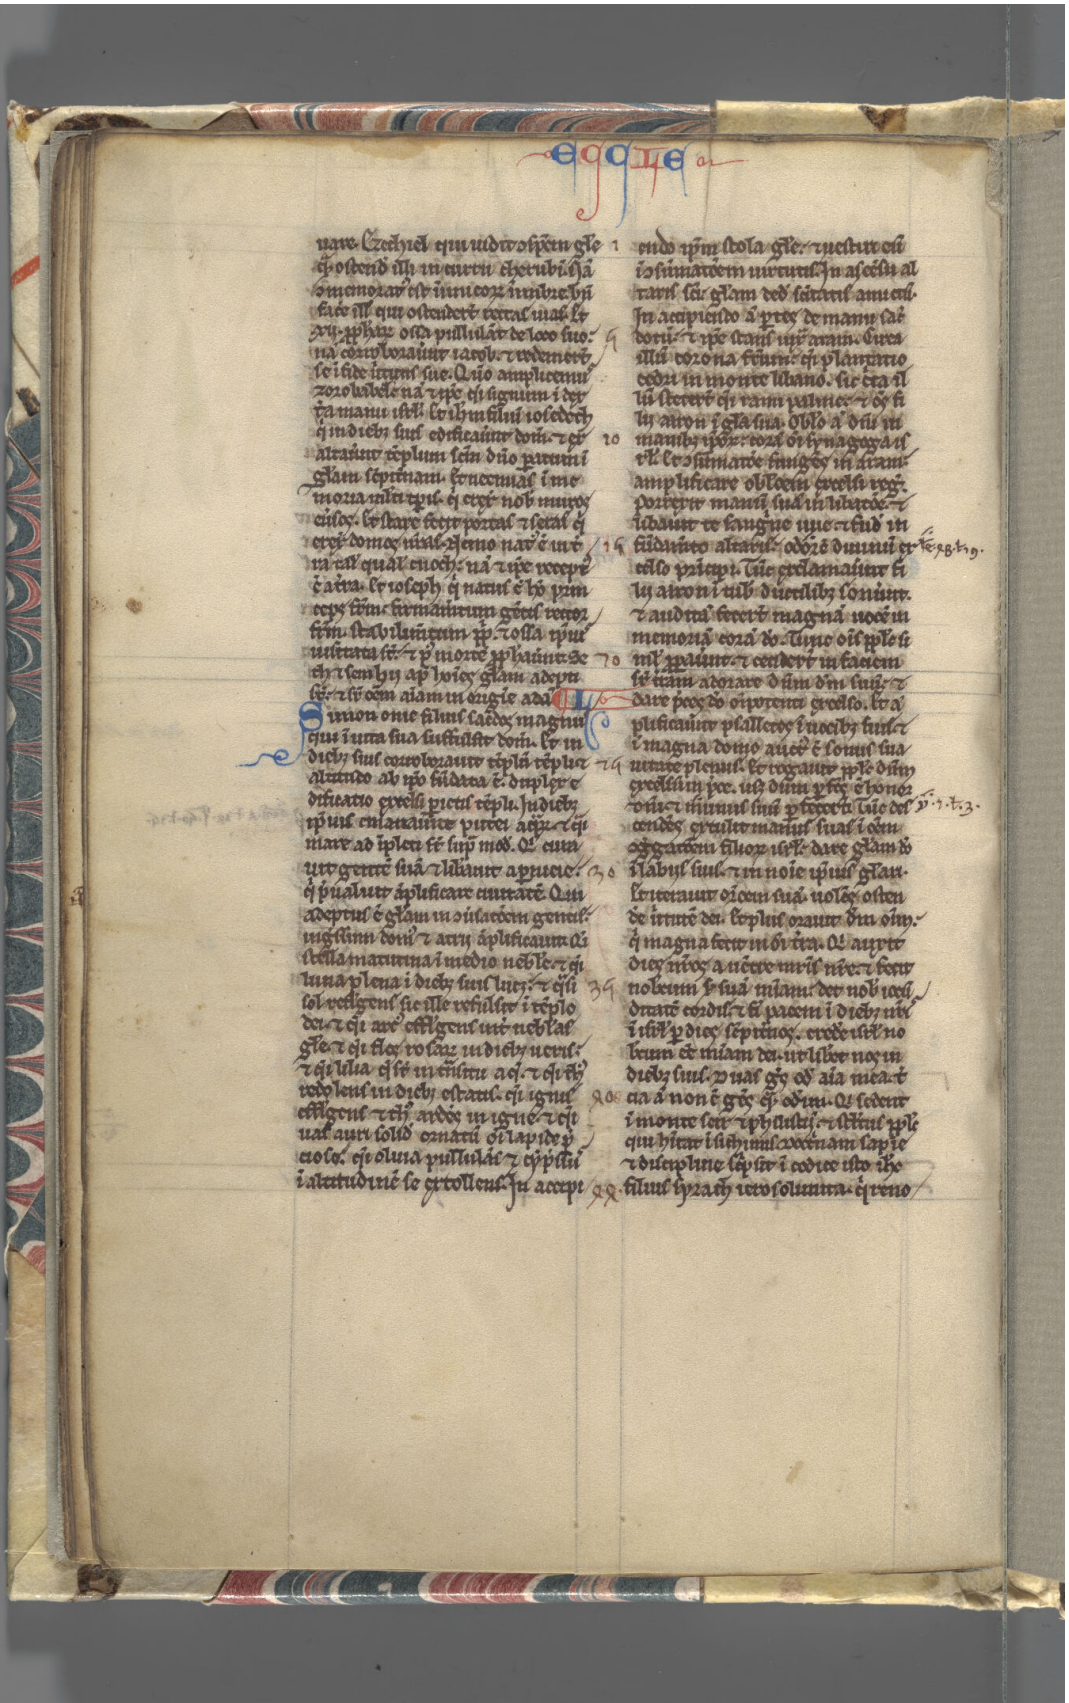 ECCLE
uare. Ezechiel qui uidit ɔspẽm gl̃e
q̃ ostend̾ illi in curru cherubĩ. Nã
ɔmemorat᷑ est ĩimicoꝝ ĩ imbre. bñ
fac̾e ill̾ qui ostender̃t rectas uias. Et
xij. ꝓphaꝝ ossa pullulãt de loco suo.
nã corroborauer̃t iacob. ⁊ redemer̃t
se ĩ fide ũtutis sue. Quõ amplicemꝰ
zorobabele nã ⁊ ip̃e q̃i signum ĩ dex
t̾a manu isrl̾. Et ih̃m filiũ iosedech
q̃ in diebꝫ suis edificauer̃t domũ. ⁊ ex
altauer̃t tẽplum scm̃ dño paratum ĩ
gl̃am sẽpit̾nam. Et neemias ĩ me
moria ml̾ti tꝑis. q̃ erex̾ nob̾ muros
eũsos. Et stare fecit portas ⁊ seras q̃
erex̾ domos nr̃as. Nemo nat᷑ ẽ in t̾
ra tal̾ qual̾ enoch. nã ⁊ ip̃e recept᷑
ẽ a t̾ra. Et ioseph q̃ natus ẽ hõ prin
ceps fr̃m. firmam̃tum gẽtis rector
fr̃m. stabilim̃tum pp̃l̾. ⁊ ossa ip̃iꝰ
uisitata st̾. ⁊ p̾ mortẽ ꝓphauer̃t. Se
th ⁊ sem hij ap̾ hoĩes gl̃am adepti
st̾. ⁊ sr̾ oẽm aĩam in origĩe adã. L.
Simon onie filius sac̾dos magnꝰ
qui ĩ uita sua suffulsit domũ. Et in
diebꝫ suis corroborauit tẽplũ. tẽpli ⁊
altitudo ab ip̃o fũdata ẽ. duplex e
dificatio excelsi parietes tẽpli. In diebꝫ
ip̃ius emanauer̃t putei aqꝝ. ⁊ q̃i
mare ad ĩpleti st̾ sup̾ mod̾. Q̾ cura
uit gentẽ suã ⁊ lib̾auit a ꝑnicie.
q̃ p̾ualuit ãplificare ciuitatẽ. Qui
adeptus ẽ gl̃am in ɔũsatõem gentis.
ingressum domꝰ ⁊ atrij ãplificauit. Q̃i
stella matutina ĩ medio nebl̾e. ⁊ q̃i
luna plena ĩ diebꝫ suis lucꝫ. ⁊ q̃si
sol reful̾gens sic ille refulsit ĩ tẽplo
dei. ⁊ q̃i arcꝰ efful̾gens int̾ nebl̾as
gl̃e. ⁊ q̃i flos rosaꝝ in diebꝫ ueris.
⁊ q̃i lilia q̃ st̾ in trãsitu aq̃. ⁊ q̃i thꝰ
redolens in diebꝫ estatis. q̃i ignis
efful̾gens ⁊ thꝰ ardẽs in igne ⁊ q̃i
uas auri solid̾ ornatũ oĩ lapide p̾
cioso. q̃i oliua pullulãs ⁊ cyp̾ssꝰ
ĩ altitudinẽ se extollens. In accipi
1
5
10
15
20
25
30
35
40
44
endo ip̃m stola gl̃e. ⁊ uestiri eũ
ĩ ɔsũmatõem uirtutis. In ascẽsu al
taris sc̃i gl̃am ded̾ sc̃itatis amictũ.
In accipiendo ã ꝑtes de manu sac̾
dotũ. ⁊ ip̃e stans iux̾ aram. Circa
illũ corona fr̃um. q̃i plantatio
cedri in monte libano. sic c̾ca il
lũ stet̾er̃t q̃i rami palme. ⁊ oẽs fi
lij aaron ĩ gl̃a sua. Obl̾o ã dñi in
manibꝫ ip̃oꝝ. corã oĩ synagoga is
rl̾. Et ɔsũmatõe fungẽs in aram.
amplificare obl̾oem excelsi reg̾.
porrexit manũ suã in libatõe. ⁊
libauit de sanguĩe uue. ⁊ fud̾ in
fũdam̃to altaris. odorẽ diuinũ ex
celso principi. Tũc exclamauer̃t fi
lij aaron ĩ tub̾ ductilibꝫ sonuer̃t.
⁊ auditã fecer̃t magnã uocẽ in
memoriã corã dõ. Tunc oĩs pp̃l̾s si
mĩ ꝓpauer̃t. ⁊ cecider̃t in faciem
sr̾ t̾ram adorare dñm dm̃ suũ. ⁊
dare p̾ces dõ omĩpotenti excelso. Et ã
plificauer̃t psallẽtes ĩ uocibꝫ suis. ⁊
ĩ magna domo auct᷑ ẽ sonus sua
uitate plenus. Et rogauit pp̃l̾s dñm
excelsum in p̾ce. usꝫ dum ꝑfcũs ẽ honor
dñi. ⁊ munus suũ ꝑfecer̃t. Tũc des
cendẽs extulit manus suas ĩ oẽm
ɔgregatõem filioꝝ isrl̾. dare gl̃am dõ
ĩ labijs suis. ⁊ in noĩe ip̃ius gl̃ari.
Et iterauit or̃oem suã. uolẽs osten
d̾e ũtutẽ dei. Et plus orauit dm̃ oĩm.
q̃ magna fecit in oĩ t̾ra. Q̾ auxit
dies nr̃os a uẽtre mr̃is nr̃e. ⁊ fecit
nobcum sr̾ suã mĩam. det nob̾ iocũ
ditatẽ cordis. ⁊ fi̾ pacem ĩ diebꝫ nr̃is
ĩ isrl̾ ꝑ dies sẽpit̾nos. cred̾e isrl̾ no
bcum ẽe mĩam dei. ut lib̾et nos in
diebꝫ suis. Duas gẽs od̾ aĩa mea. t̾
cia ã non ẽ gẽs q̃ od̾im. Q̾ sedent
ĩ monte seir ⁊ philistijm. ⁊ stl̾tus pp̃l̾s
qui hĩtat ĩ sichimis. Doctrinam sapĩe
⁊ discipline sc̾psit ĩ codice isto ih̃s
filius syrach ierosolimita. q̃ reno